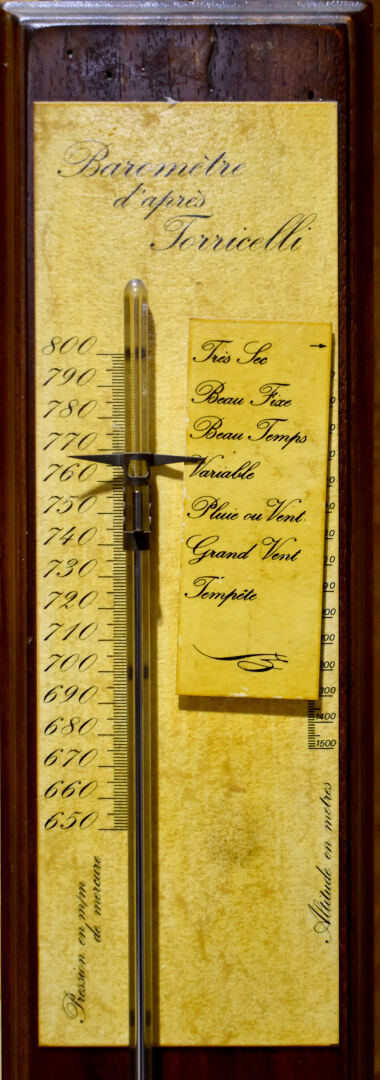 Baromètre
d'après
Torricelli
800
790
780
770
760
750
740
730
720
710
700
690
680
670
660
650
Très Sec
Beau Fixe
Beau Temps
Variable
Pluie ou Vent
Grand Vent
Tempête
1400
1500
Pression en m/m
de mercure
Altitude en metres